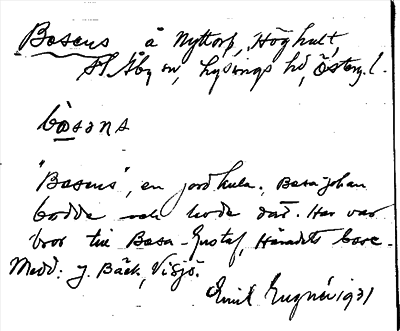 Basens å Nyttorp, Höghult,
St. Åby sn, Lysings hd, Österg. l.
bòsans
"Basens", en jordkula. Basa-Johan
bodde och levde där. Han var
bror till Basa-Gustaf, Häradets bove-
Medd. J. Bäck, Visjö.
Emil 1931